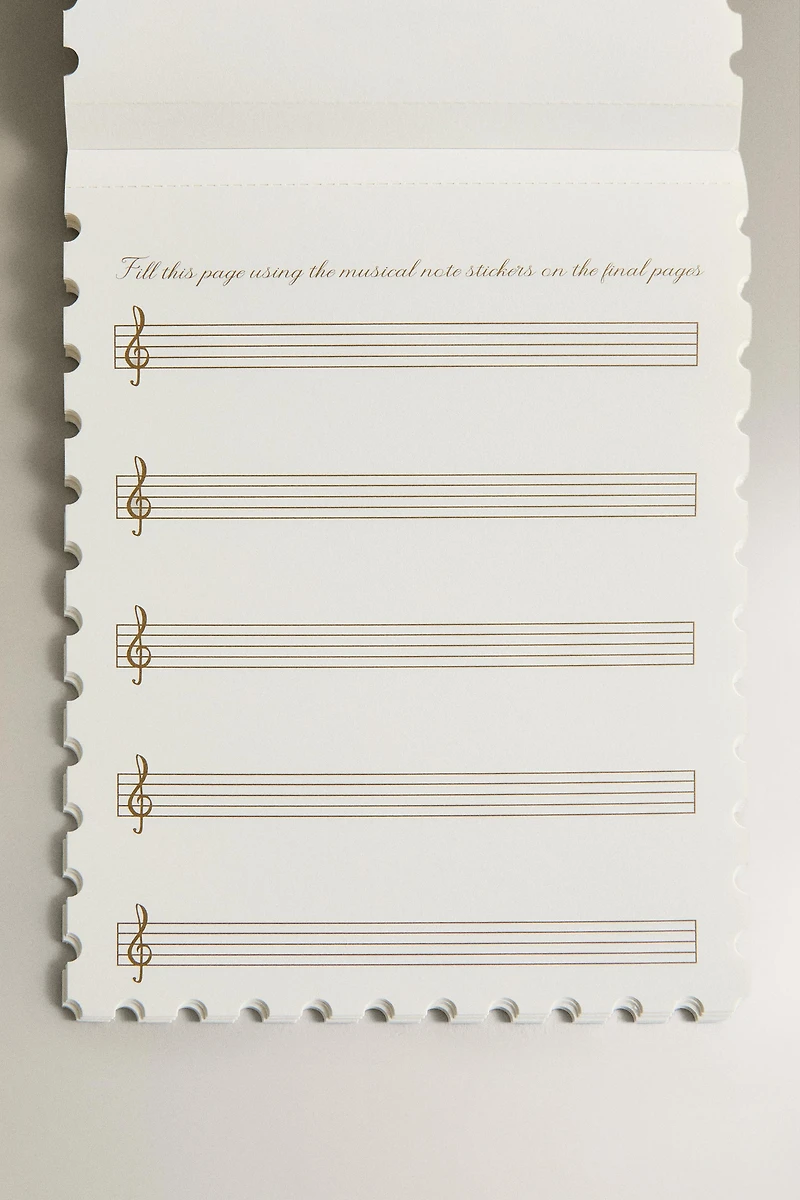 Fill this page using the musical note stickers on the final pages